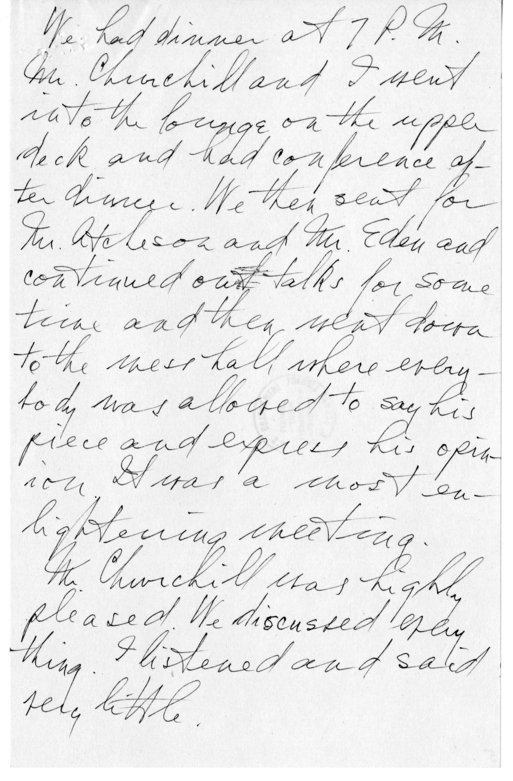 We had dinner at 7 P.M.
Mr. Churchill and I went
into the lounge on the upper
deck and had conference af-
ter dinner. We then sent for
Mr. Atcheson and Mr. Eden and
continued our talks for some
time and then went down
to the mess hall, where every-
body was allowed to say his
piece and express his opin-
ion. It was a most en-
lightening meeting.
Mr. Churchill was highly
pleased. We discussed every
thing. I listened and said
very little.